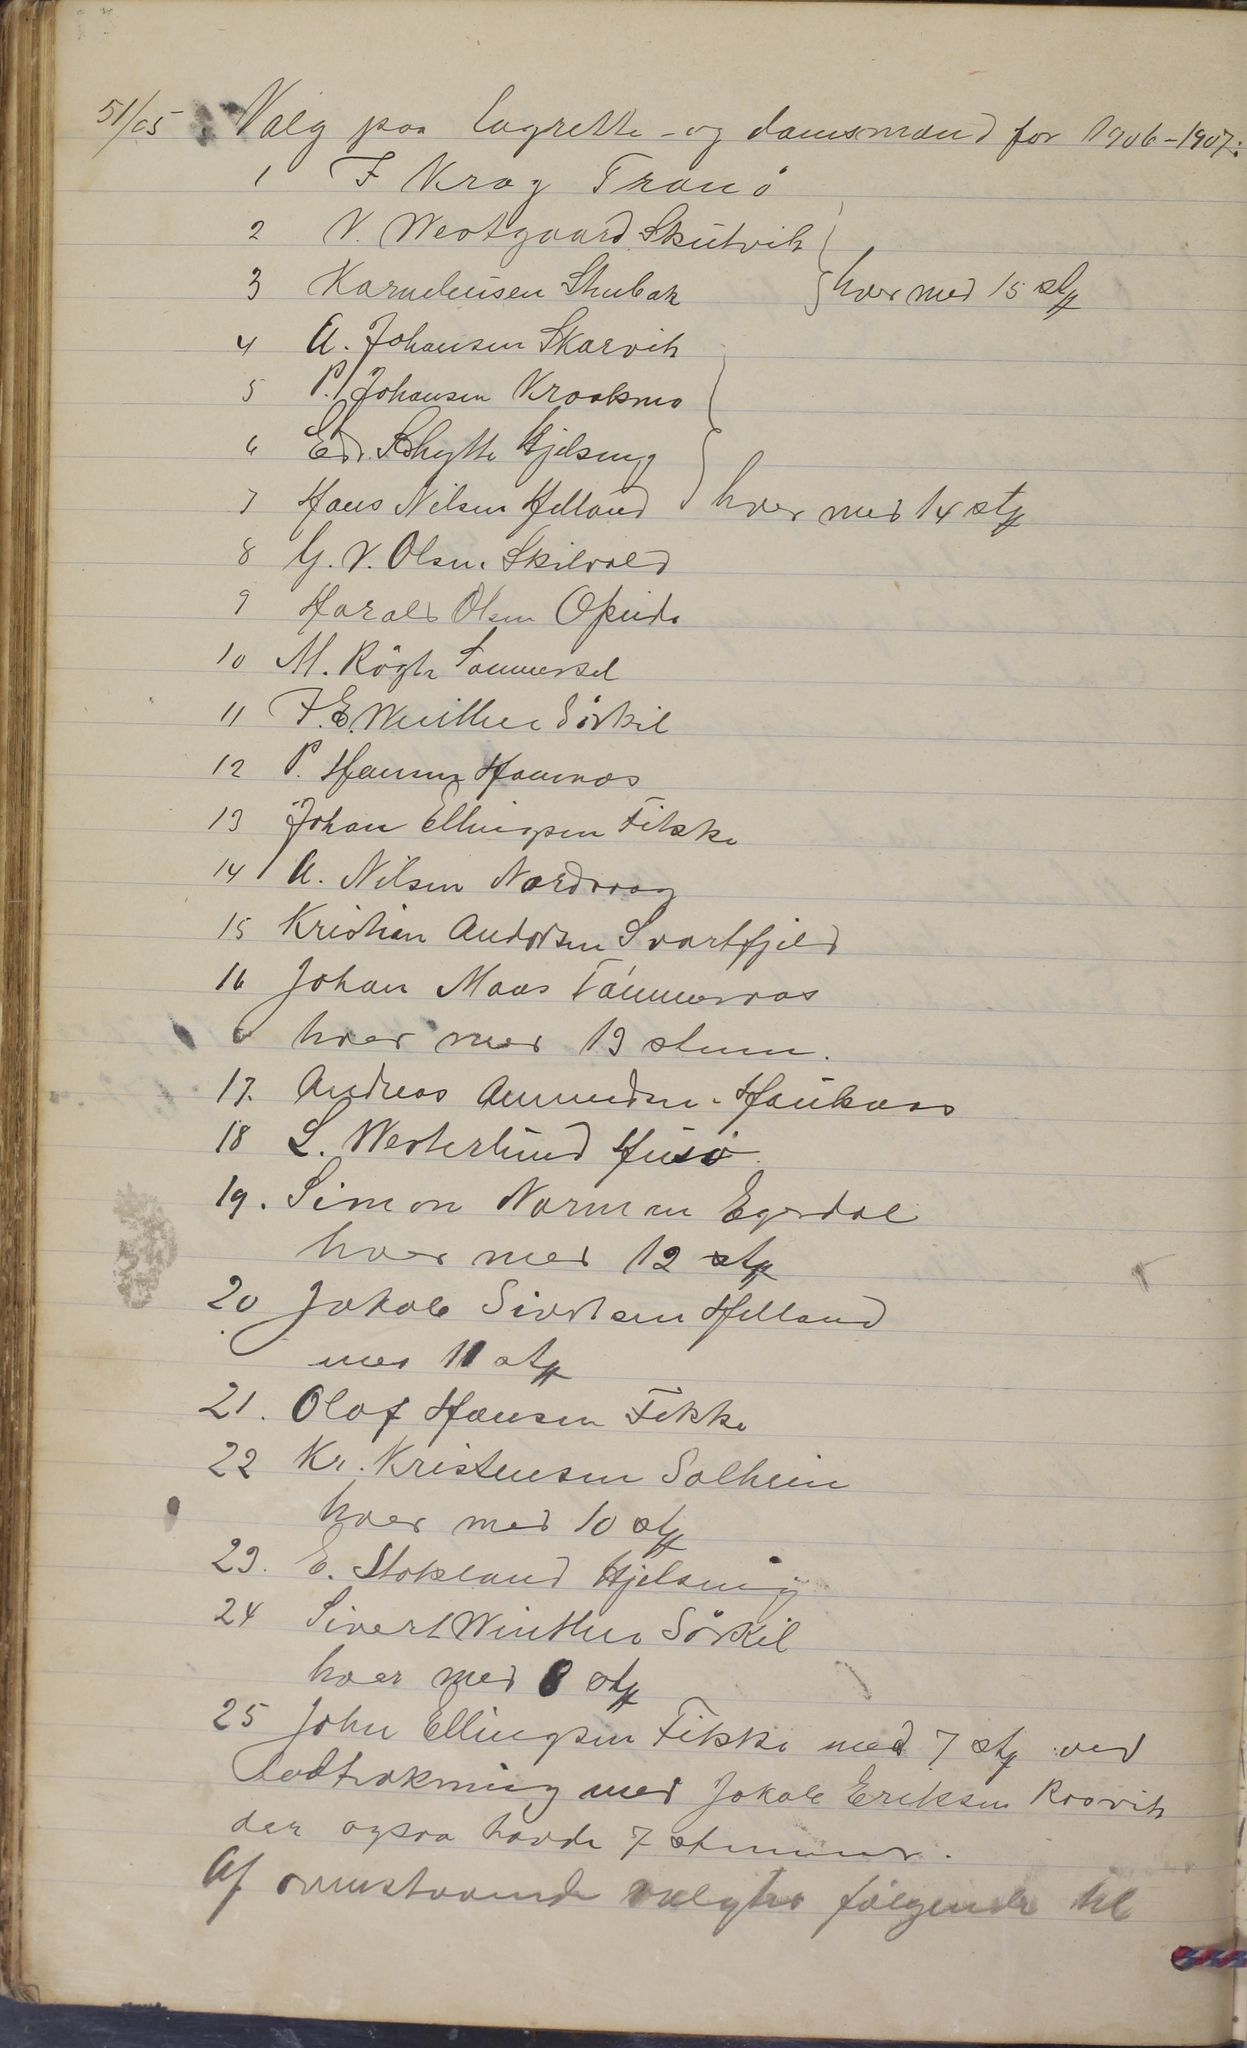 51/05 Valg paa lagrette - og domsmænd for 1906-1907:
1 F Krag Tranö
2 V. Westgaard Skutvik
3 Karneliusen Stubak } hver med 15 st
4 A. Johansen Skarvik
5 P. Johansen Kraakmo
6 Edv. Schytte Hjelsnæg
7 Hans Nilsen Helland } hver med 14 st
8 G. V. Olsen Skilvald
9 Harald Olsen Opeide
10 M. Rögh Sommersel
11 F. E. Winther Sörkil
12 P. Hansen Hamnæs
13 Johan Ellingsen Fikke
14 A. Nilsen Nordvaag
15 Kristian Andorsen Svartfjeld
16 Johan Maas Tömmeraas
hver med 13 stem.
17. Andreas Amundsen Haukaas
18 L. Westerlund Husö
19. Simon Norman Egerdal
hver med 12 st
20 Jakob Sivertsen Helland
med 11 st
21. Olaf Hansen Fikke
22 Kr. Kristensen Solheim
hver med 10 st
23. E. Stokland
24 Sivert Winther Sörkil
hver med 8 st
25 John Ellingsen Fikke med 7 st ved
lodtrækning med Jakob Eriksen Rosvik
der ogsaa havde 7 stemmer.
Af ovenstaaende valgtes følgende til